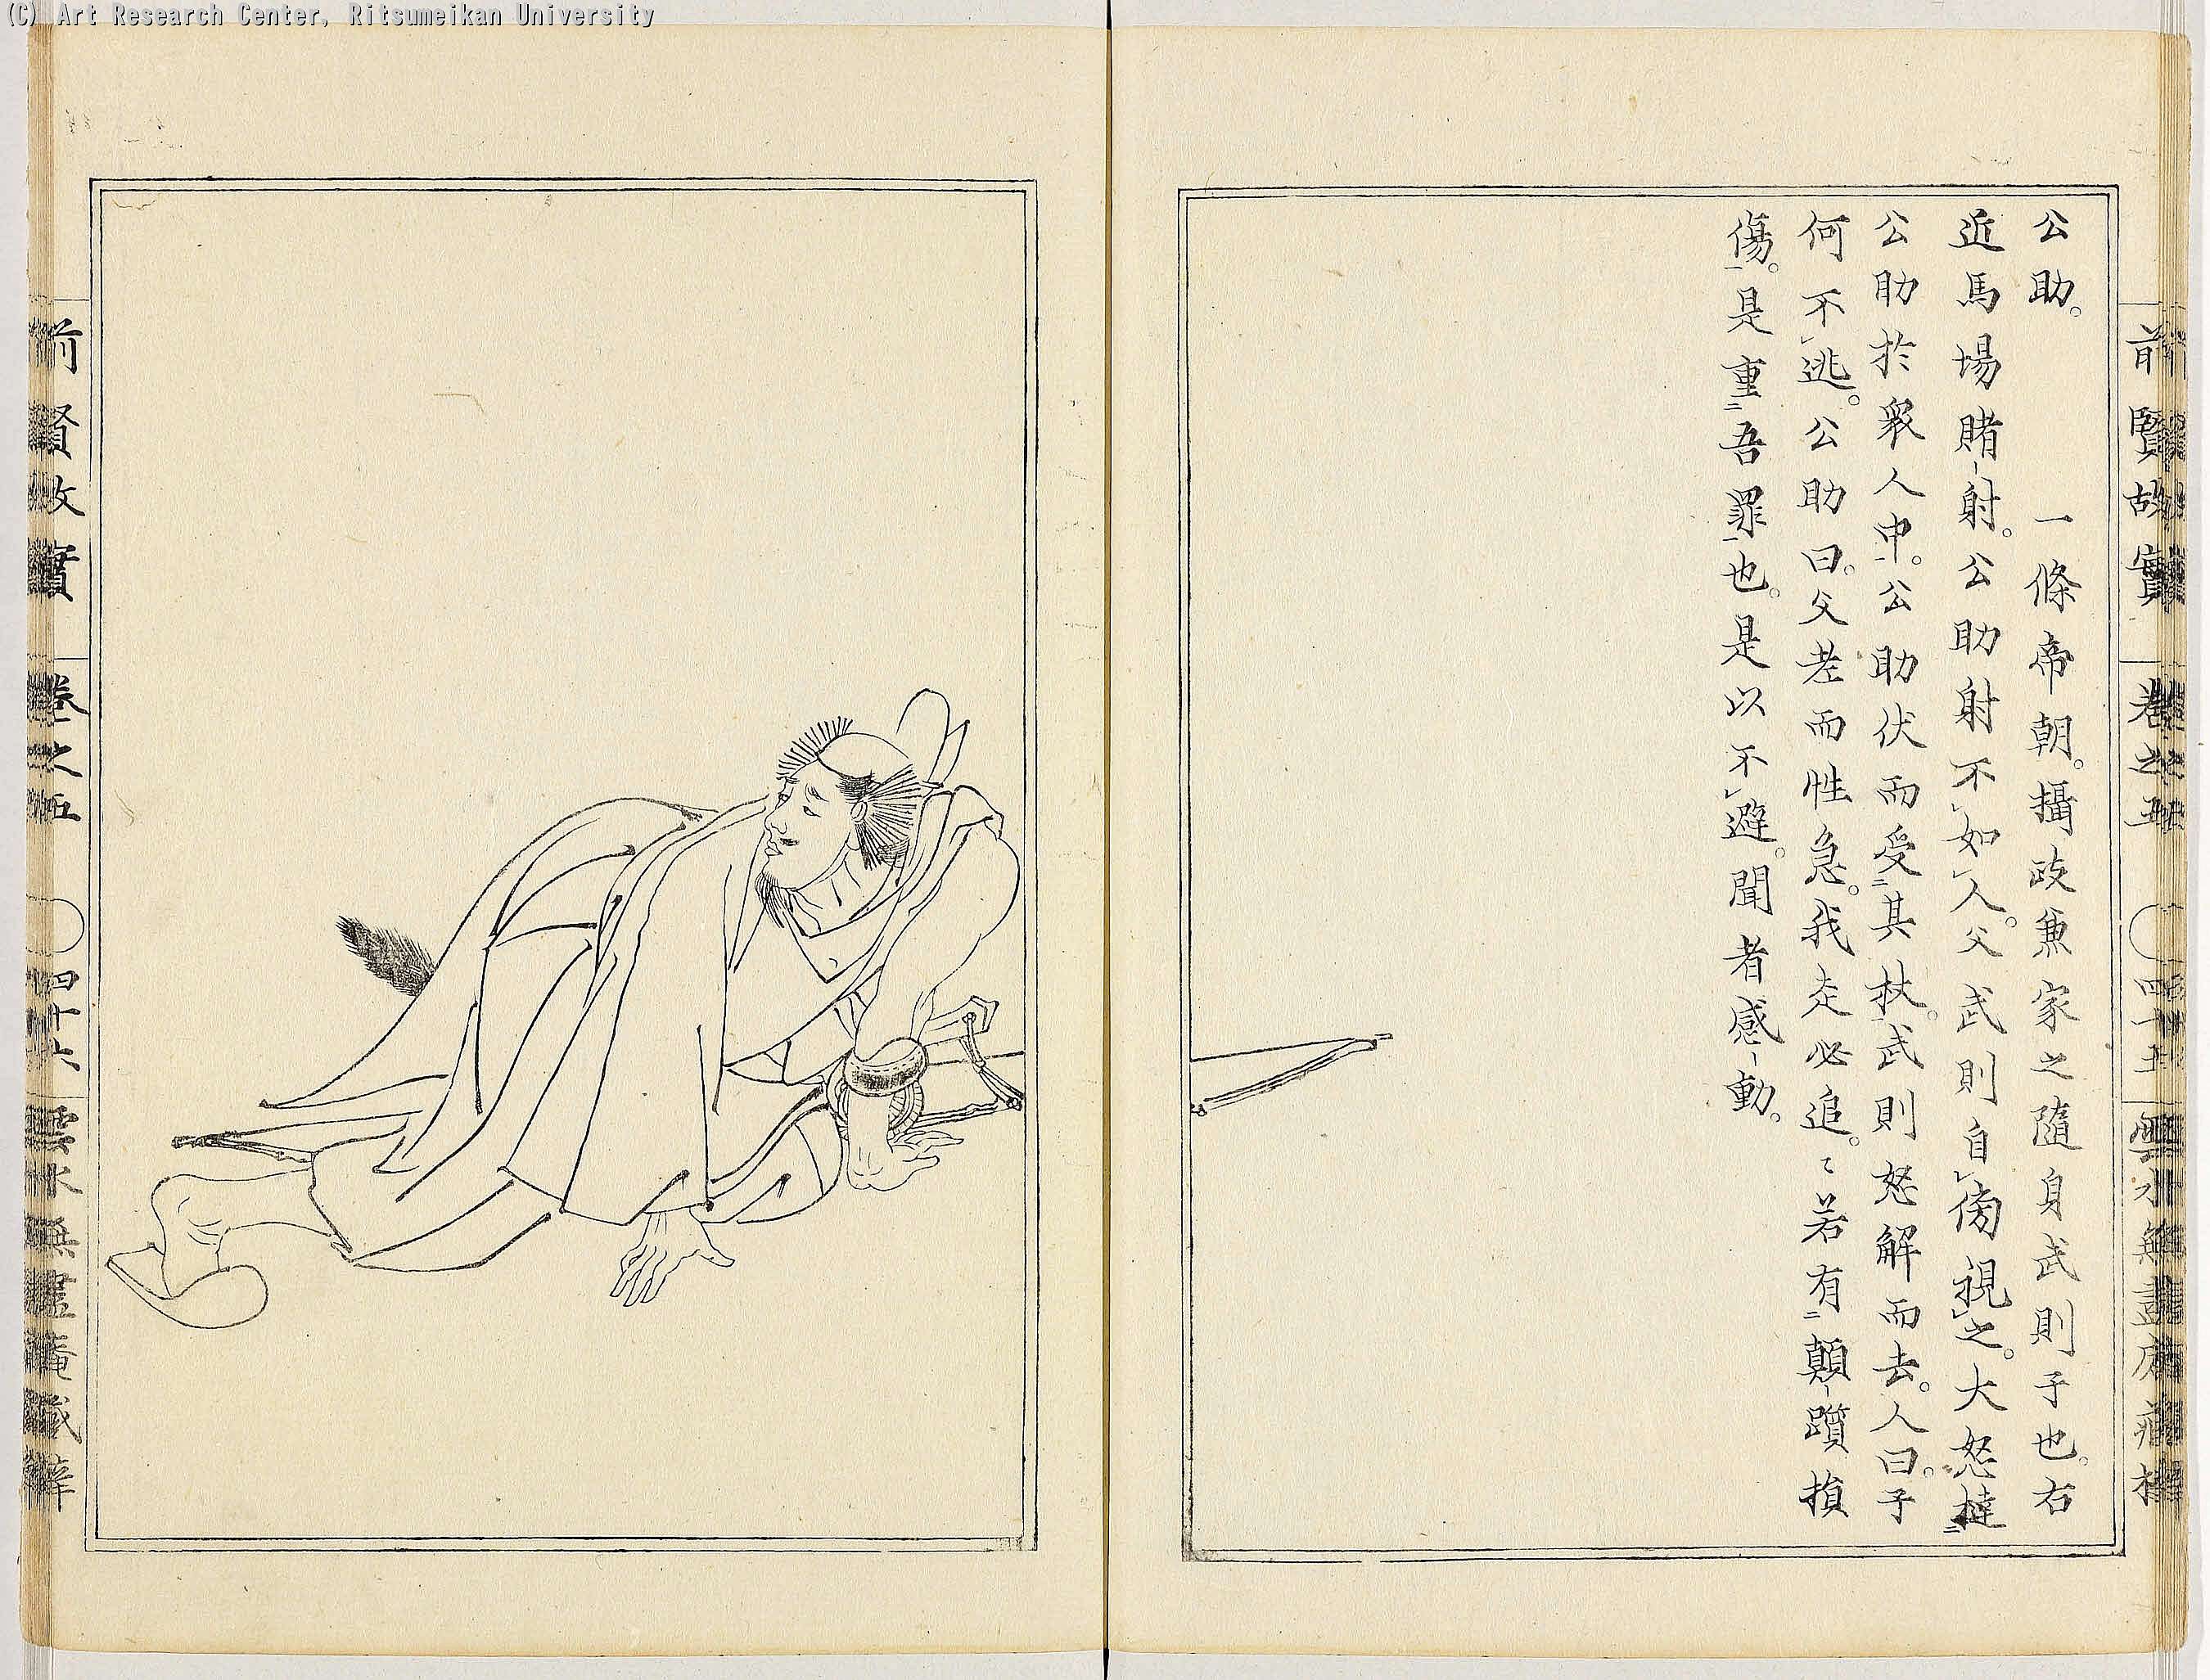 (C) Art Research Center, Ritsumeikan University
前賢故實 卷之五 雲水無盡庵藏梓
公助。 一條帝朝。攝政兼家之隨身武則子也。右
近馬場賭射。公助射不如人。父武則自傍視之。大怒撻
公助於衆人中。公助伏而受其杖。武則怒解而去。人曰。子
何不逃。公助曰。父老而性急。我走必追。〻若有顛躓損
傷。是重吾罪也。是以不避。聞者感動。
前賢故實 卷之五 四十六 雲水無盡庵藏梓